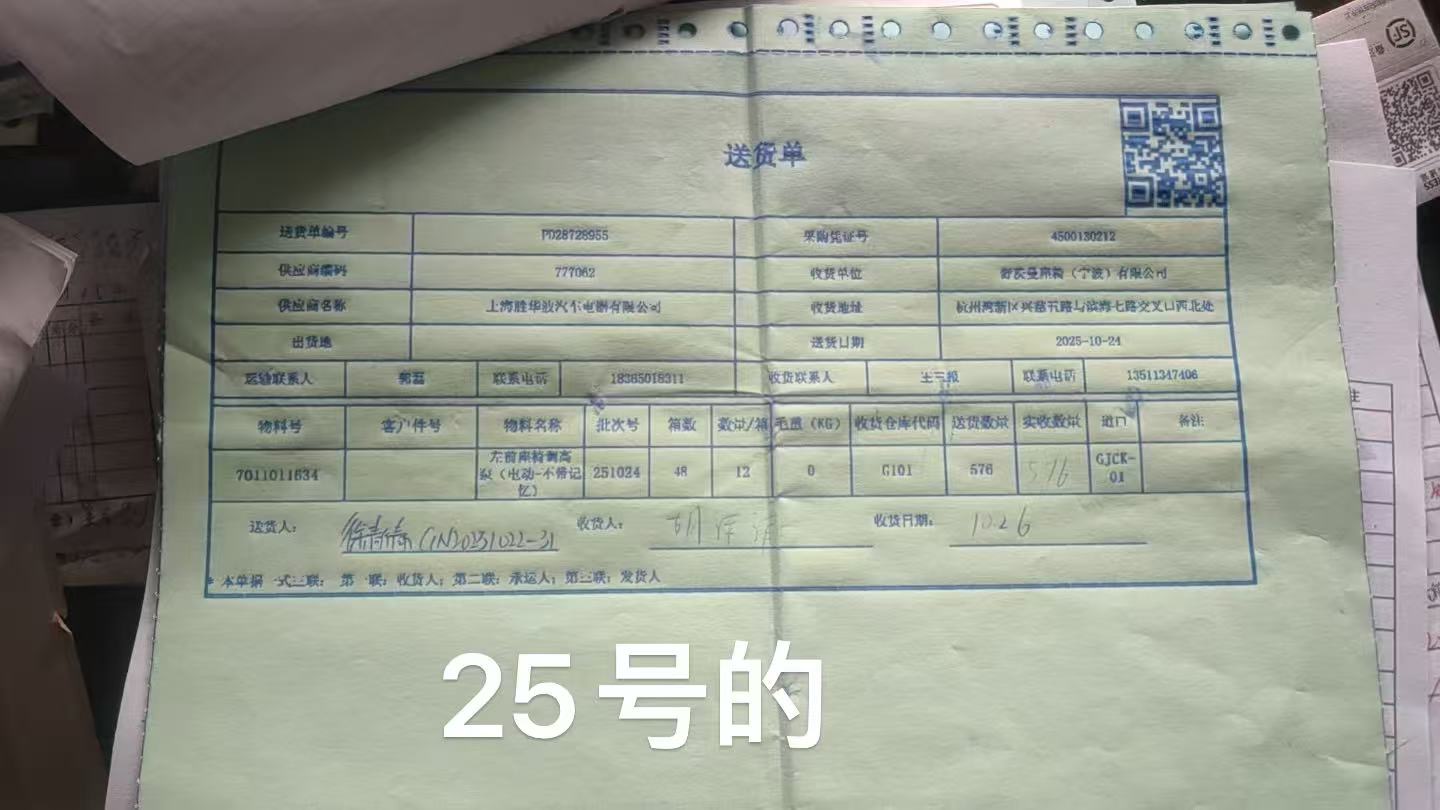 送货单
送货单编号 PD28728955 采购凭证号 4500130212
供应商编码 777062 收货单位 舒茨曼座椅（宁波）有限公司
供应商名称 上海胜华波汽车电器有限公司 收货地址 杭州湾新区兴慈五路与滨海七路交叉口西北处
出货地 送货日期 2025-10-24
运输联系人 郭磊 联系电话 18365018311 收货联系人 联系电话 13511347406
物料号 客户件号 物料名称 批次号 箱数 数量/箱 毛重（KG） 收货仓库代码 送货数量 实收数量 道口 备注
7011011634 左前座椅调高泵（电动-不带记忆） 251024 48 12 0 G101 576 576 GJCK-01
送货人： 收货人： 胡 收货日期： 10.26
* 本单据一式三联：第一联：收货人；第二联：承运人；第三联：发货人
25号的